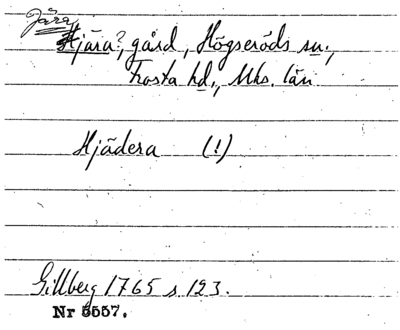 Jära
Hjära?, gård, Högseröds sn.,
Frosta hd., Mhs. län
Hjädera (!)
Gillberg 1765 s. 123.
Nr 5557.